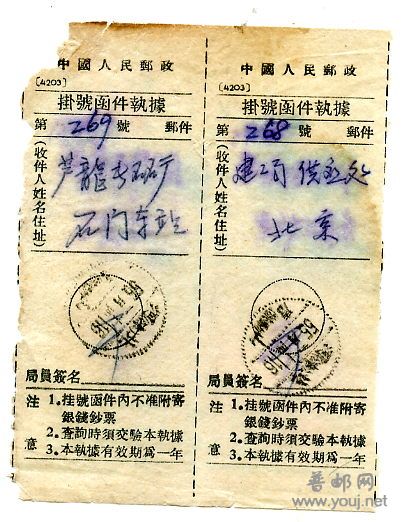 中國人民郵政
〔4203〕
掛號函件執據
第 269 號 郵件
(收件人姓名住址)
芦龍
石门车站
局員簽名
注意
1.挂號函件內不准附寄
銀錢鈔票
2.查詢時須交驗本執據
3.本執據有效期爲一年
中國人民郵政
〔4203〕
掛號函件執據
第 268 號 郵件
(收件人姓名住址)
建工
北京
局員簽名
注意
1.挂號函件內不准附寄
銀錢鈔票
2.查詢時須交驗本執據
3.本執據有效期爲一年
普邮网
www.youj.net